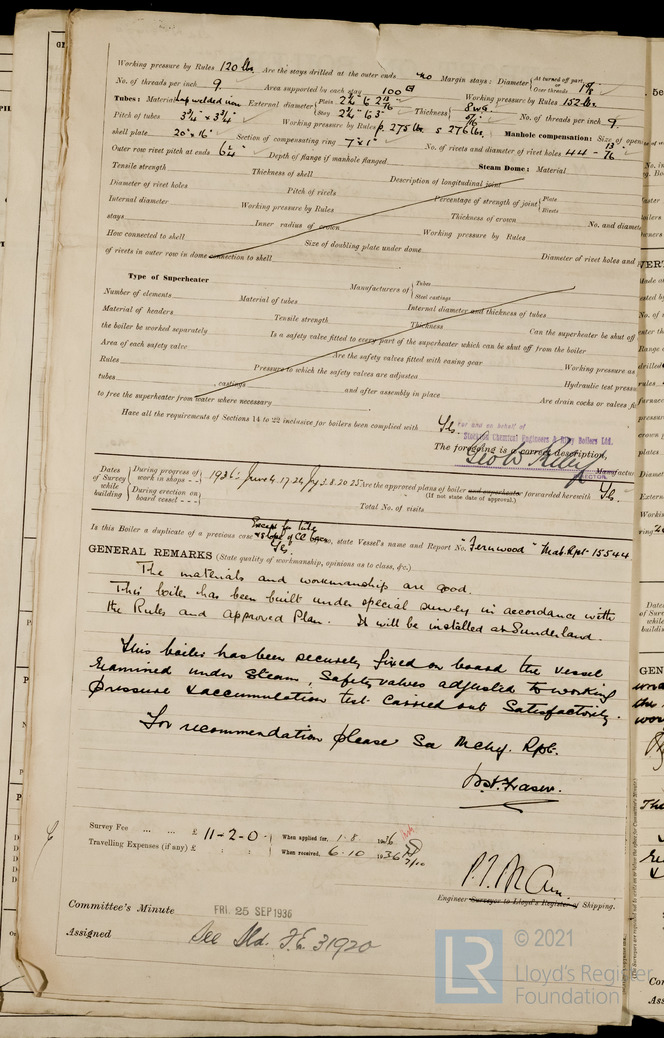 Working pressure by Rules 120 lbs. Are the stays drilled at the outer ends no Margin stays: Diameter { At turned off part, or Over threads
No. of threads per inch 9. Area supported by each stay 100 Working pressure by Rules 152 lbs.
Tubes: Material Lap welded iron External diameter { Plain 2¾" Stay 2¾" Thickness { 8 WG 5/16 No. of threads per inch 9
Pitch of tubes 3¾" x 3¾" Working pressure by Rules p. 275 lbs s 276 lbs. Manhole compensation: Size of opening
shell plate 20" x 16" Section of compensating ring 7" x 1" No. of rivets and diameter of rivet holes 44 - 13/16
Outer row rivet pitch at ends 6¼" Depth of flange if manhole flanged Steam Dome: Material
Tensile strength Thickness of shell Description of longitudinal joint
Diameter of rivet holes Pitch of rivets Percentage of strength of joint { Plate Rivets
Internal diameter Working pressure by Rules Thickness of crown No. and diameter
stays Inner radius of crown Working pressure by Rules
How connected to shell Size of doubling plate under dome Diameter of rivet holes and
of rivets in outer row in dome connection to shell
Type of Superheater Manufacturers of { Tubes Steel castings
Number of elements Material of tubes Internal diameter and thickness of tubes
Material of headers Tensile strength Thickness Can the superheater be shut off
the boiler be worked separately Is a safety valve fitted to every part of the superheater which can be shut off from the boiler
Area of each safety valve Are the safety valves fitted with easing gear Working pressure as
Rules Pressure to which the safety valves are adjusted Hydraulic test pressure
tubes , castings and after assembly in place Are drain cocks or valves
to free the superheater from water where necessary
Have all the requirements of Sections 14 to 22 inclusive for boilers been complied with Yes.
For and on behalf of
Stockton Chemical Engineers & Riley Boilers Ltd.
The foregoing is a correct description,
Geo W Riley Manufacturer
DIRECTOR.
Dates of Survey while building { During progress of work in shops - - 1936: June 4. 17. 24 July 2. 8. 20. 25 Are the approved plans of boiler and superheater forwarded herewith Yes.
During erection on board vessel - - - (If not state date of approval.)
Total No. of visits
Except for tube
& slope of CC backs
Is this Boiler a duplicate of a previous case Yes. so, state Vessel's name and Report No. "Fernwood" Mab. Rpt. 15544
GENERAL REMARKS (State quality of workmanship, opinions as to class, &c.)
The materials and workmanship are good.
This boiler has been built under special survey in accordance with
the Rules and approved Plan. It will be installed at Sunderland.
This boiler has been securely fixed on board the vessel
Examined under Steam, Safety valves adjusted to working
pressure & accumulation test carried out Satisfactorily.
For recommendation please See Mchy. Rpt.
Fraser.
Survey Fee ... ... £ 11-2-0 When applied for, 1-8- 1936
Travelling Expenses (if any) £ : : When received, 6-10 1936
Engineer Surveyor to Lloyd's Register of Shipping.
Committee's Minute FRI. 25 SEP 1936
Assigned See Sld. F.E. 31920
LR © 2021
Lloyd's Register
Foundation